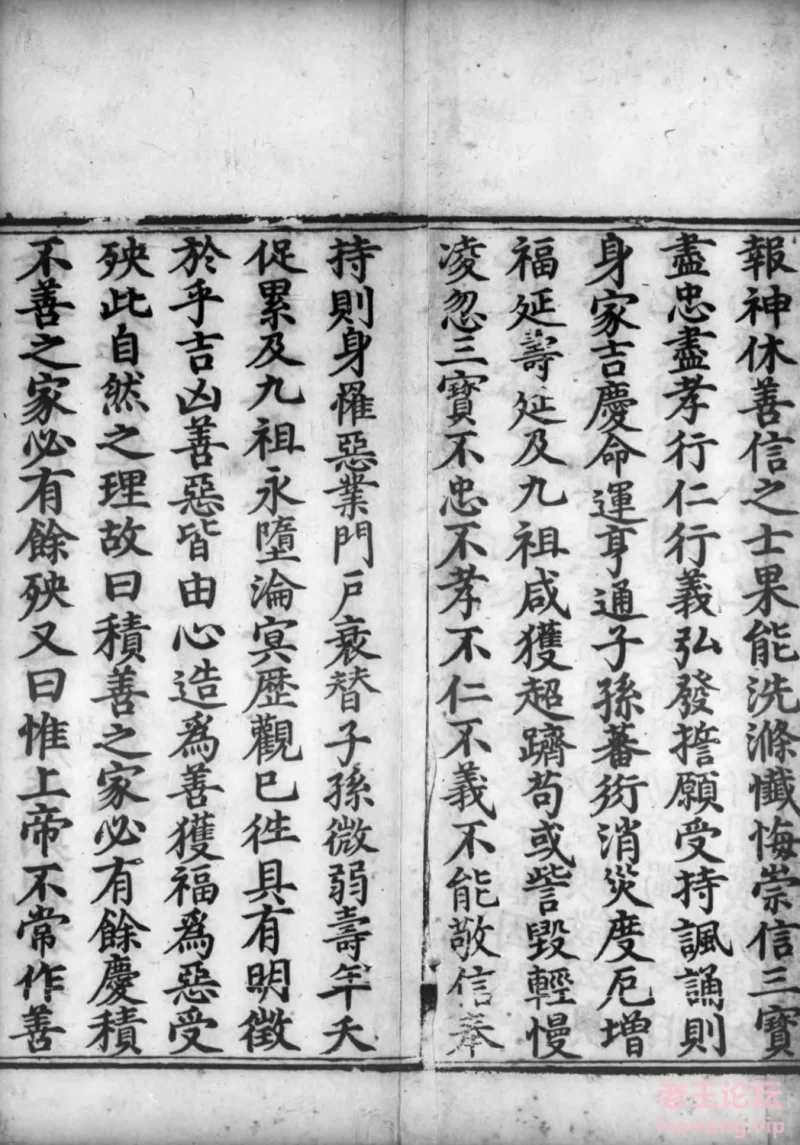 報神休善信之士果能洗滌懺悔崇信三寳
盡忠盡孝行仁行義弘發擔願受持諷誦則
身家吉慶命運亨通子孫蕃衍消災度厄增
福延壽延及九祖咸獲超躋苟或訾毀輕慢
凌忽三寳不忠不孝不仁不義不能敬信奉
持則身罹惡業門戶衰替子孫微弱壽年夭
促累及九祖永墮淪冥歷觀已徃具有明徵
於乎吉凶善惡皆由心造爲善獲福爲惡受
殃此自然之理故曰積善之家必有餘慶積
不善之家必有餘殃又曰惟上帝不常作善
老王论坛
laowang.vip